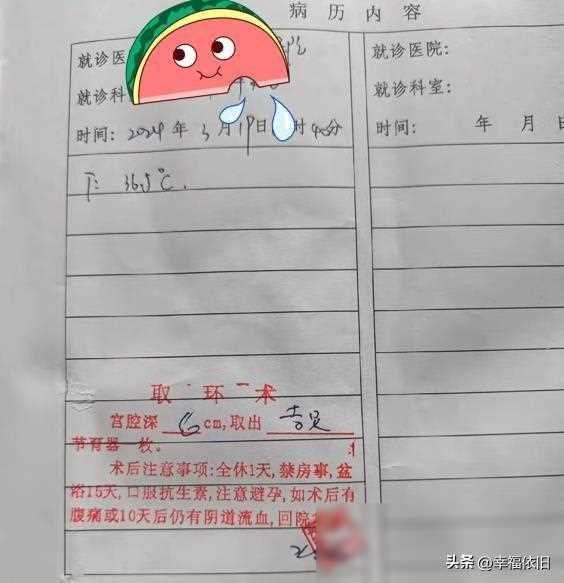 病历内容
就诊医
就诊科
时间: 2024 年 3 月 19 日 时 40 分
T: 36.5℃.
取环术
宫腔深 6 cm,取出
节育器一枚。
术后注意事项:全休1天,禁房事,盆
浴15天,口服抗生素,注意避孕,如术后有
腹痛或10天后仍有阴道流血,回院
就诊医院:
就诊科室:
时间: 年 月 日
头条 @幸福依旧